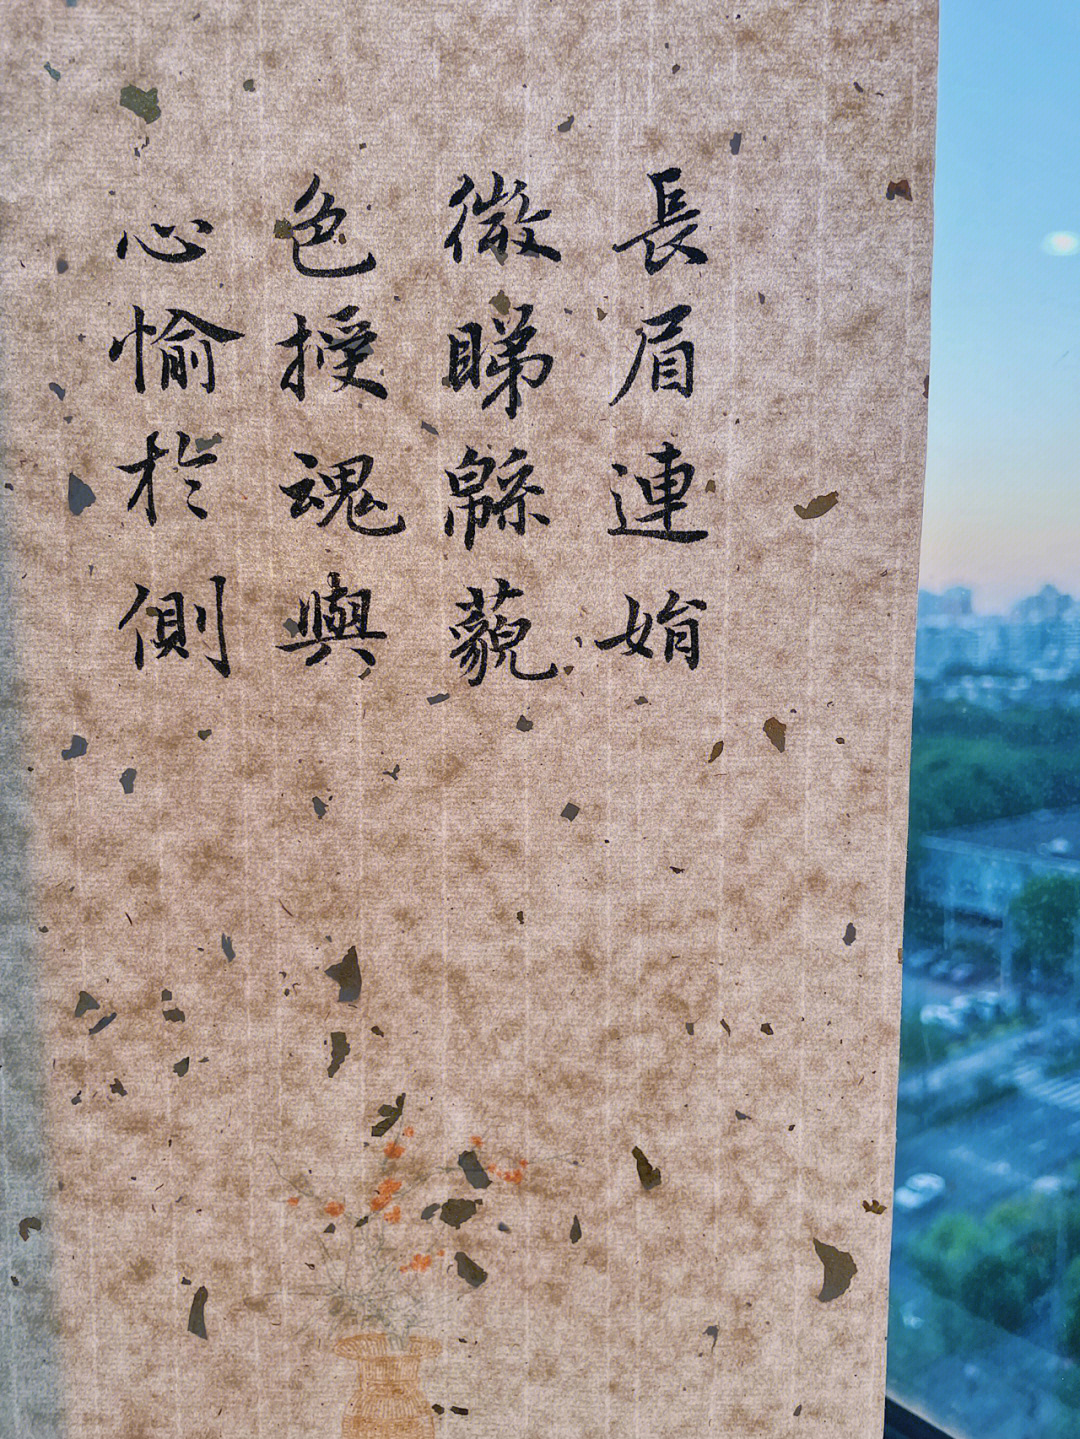 長眉連娟
微睇緜藐
色授魂與
心愉於側